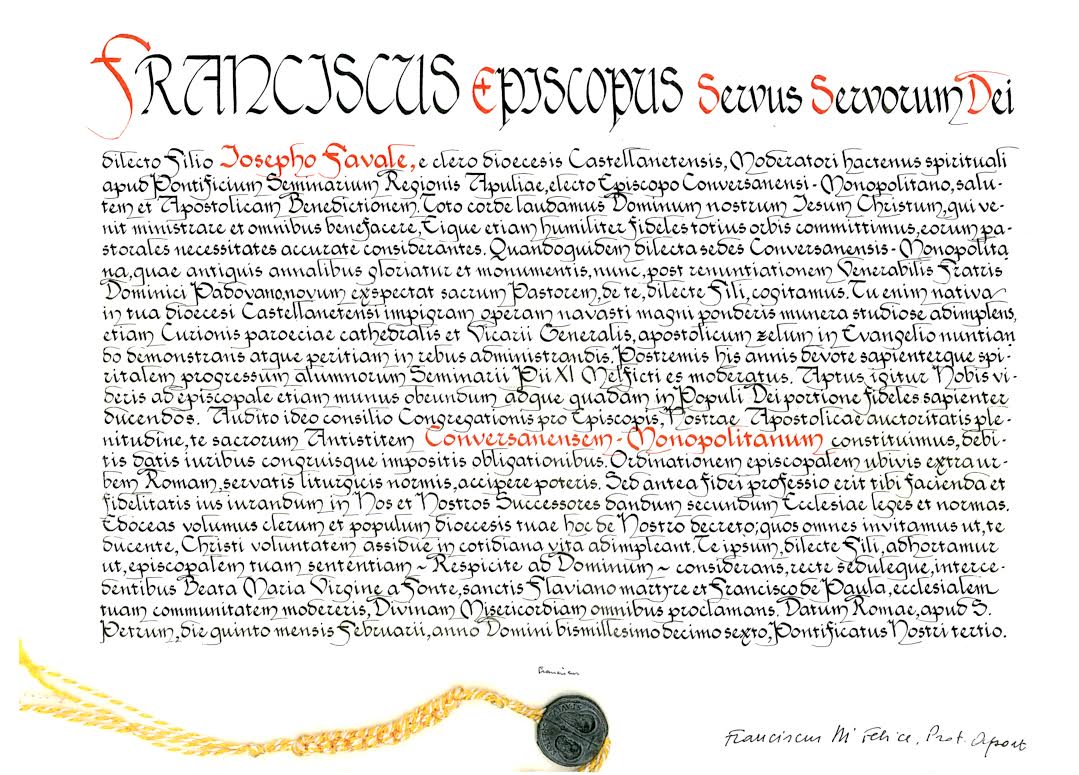 FRANCISCUS EPISCOPUS Servus Servorum Dei
dilecto Filio Iosepho Favale, e clero dioecesis Castellanetensis, Moderatori hactenus spirituali
apud Pontificium Seminarium Regionis Apuliae, electo Episcopo Conversanensi-Monopolitano, salu-
tem et Apostolicam Benedictionem. Toto corde laudamus Dominum nostrum Iesum Christum, qui ve-
nit ministrare et omnibus benefacere, Eique etiam humiliter fideles totius orbis committimus, eorum pa-
storales necessitates accurate considerantes. Quandoquidem dilecta sedes Conversanensis-Monopolita
na, quae antiquis annalibus gloriatur et monumentis, nunc, post renuntiationem Venerabilis Fratris
Dominici Padovano, novum exspectat sacrum Pastorem, de te, dilecte Fili, cogitamus. Tu enim nativa
in tua dioecesi Castellanetensi impigram operam navasti magni ponderis munera studiose adimplens,
etiam Curionis paroeciae cathedralis et Vicarii Generalis, apostolicum zelum in Evangelio nuntian
do demonstrans atque peritiam in rebus administrandis. Postremis his annis devote sapienterque spi-
ritalem progressum alumnorum Seminarii Pii XI Melficti es moderatus. Aptus igitur Nobis vi-
deris ad episcopale etiam munus obeundum adque quadam in Populi Dei portione fideles sapienter
ducendos. Audito ideo consilio Congregationis pro Episcopis, Nostrae Apostolicae auctoritatis ple-
nitudine, te sacrorum Antistitem Conversanensem-Monopolitanum constituimus, debi-
tis datis iuribus congruisque impositis obligationibus. Ordinationem episcopalem ubivis extra ur-
bem Romam, servatis liturgicis normis, accipere poteris. Sed antea fidei professio erit tibi facienda et
fidelitatis ius iurandum in Nos et Nostros Successores dandum secundum Ecclesiae leges et normas.
Edoceas volumus clerum et populum dioecesis tuae hoc de Nostro decreto; quos omnes invitamus ut, te
ducente, Christi voluntatem assidue in cotidiana vita adimpleant. Te ipsum, dilecte Fili, adhortamur
ut, episcopalem tuam sententiam ~ Respicite ad Dominum ~ considerans, recte seduleque, interce-
dentibus Beata Maria Virgine a Fonte, sanctis Flaviano martyre et Francisco de Paula, ecclesialem
tuam communitatem modereris, Divinam Misericordiam omnibus proclamans. Datum Romae, apud S.
Petrum, die quinto mensis Februarii, anno Domini bismillesimo decimo sexto, Pontificatus Nostri tertio.
Franciscus
Franciscus Di Felice, Prot. Apost